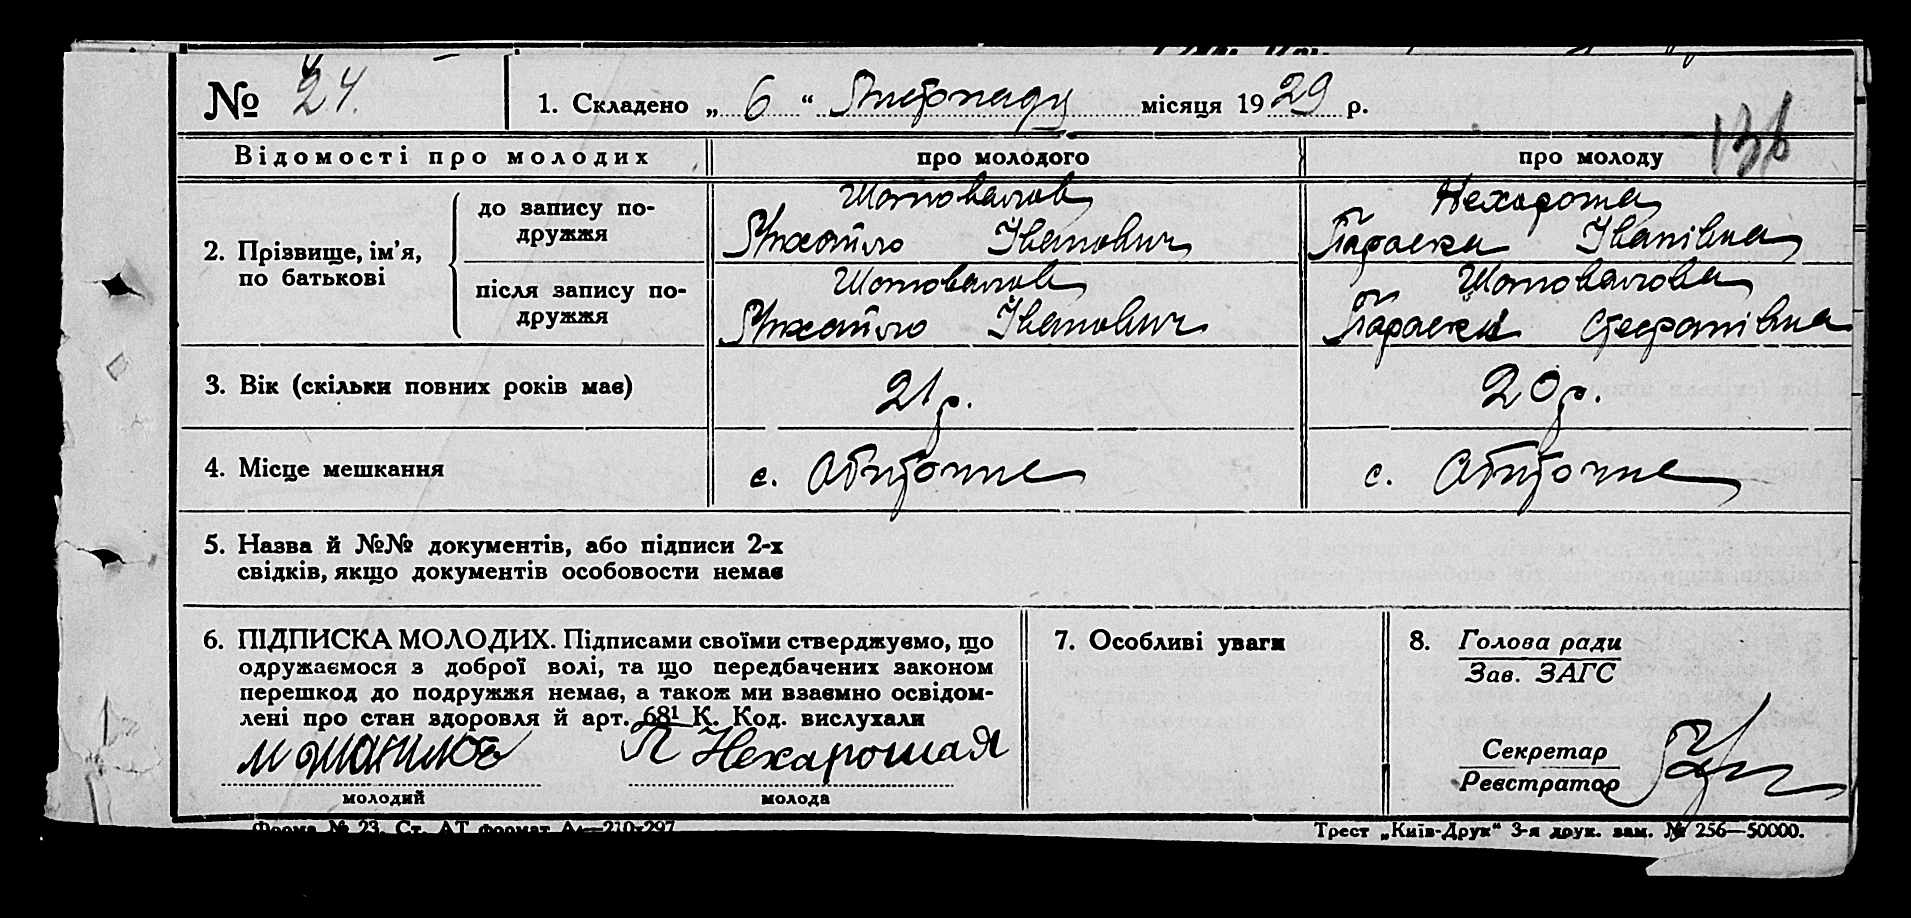 № 24.
1. Складено „ 6 “ Листопаду місяця 1929 р.
136
Відомості про молодих
про молодого
про молоду
2. Прізвище, ім’я,
по батькові
до запису по-
дружжя
Шаповалов
Михайло Іванович
Нехороша
Параска Іванівна
після запису по-
дружжя
Шаповалов
Михайло Іванович
Шаповалова
Параска Стефанівна
3. Вік (скільки повних років має)
21 р.
20 р.
4. Місце мешкання
с. Обиточне
с. Обиточне
5. Назва й №№ документів, або підписи 2-х
свідків, якщо документів особовости немає
6. ПІДПИСКА МОЛОДИХ. Підписами своїми стверджуємо, що
одружаємося з доброї волі, та що передбачених законом
перешкод до подружжя немає, а також ми взаємно освідом-
лені про стан здоровля й арт. 68¹ К. Код. вислухали
П Нехарошая
молодий
молода
7. Особливі уваги
8. Голова ради
Зав. ЗАГС
Секретар
Реєстратор
Форма № 23. Ст. АТ формат А4—210х297
Трест „Київ-Друк“ 3-я друк. зам. № 256—50000.